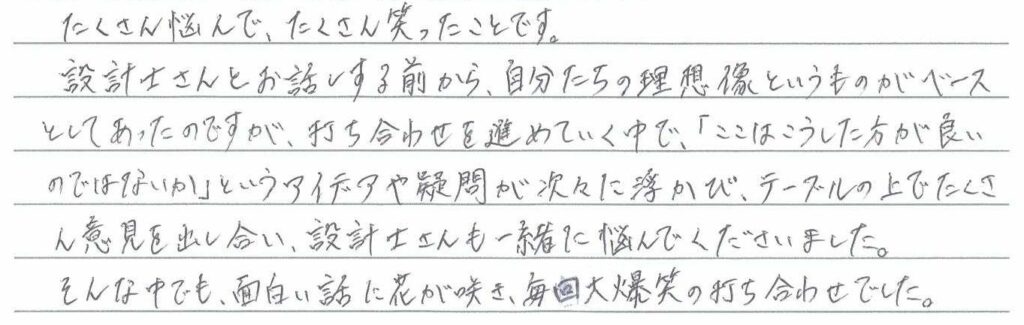 たくさん悩んで、たくさん笑ったことです。
設計士さんとお話しする前から、自分たちの理想像というものがベース
としてあったのですが、打ち合わせを進めていく中で、「ここはこうした方が良い
のではないか」というアイデアや疑問が次々に浮かび、テーブルの上でたくさ
ん意見を出し合い、設計士さんも一緒に悩んでくださいました。
そんな中でも、面白い話に花が咲き、毎回大爆笑の打ち合わせでした。